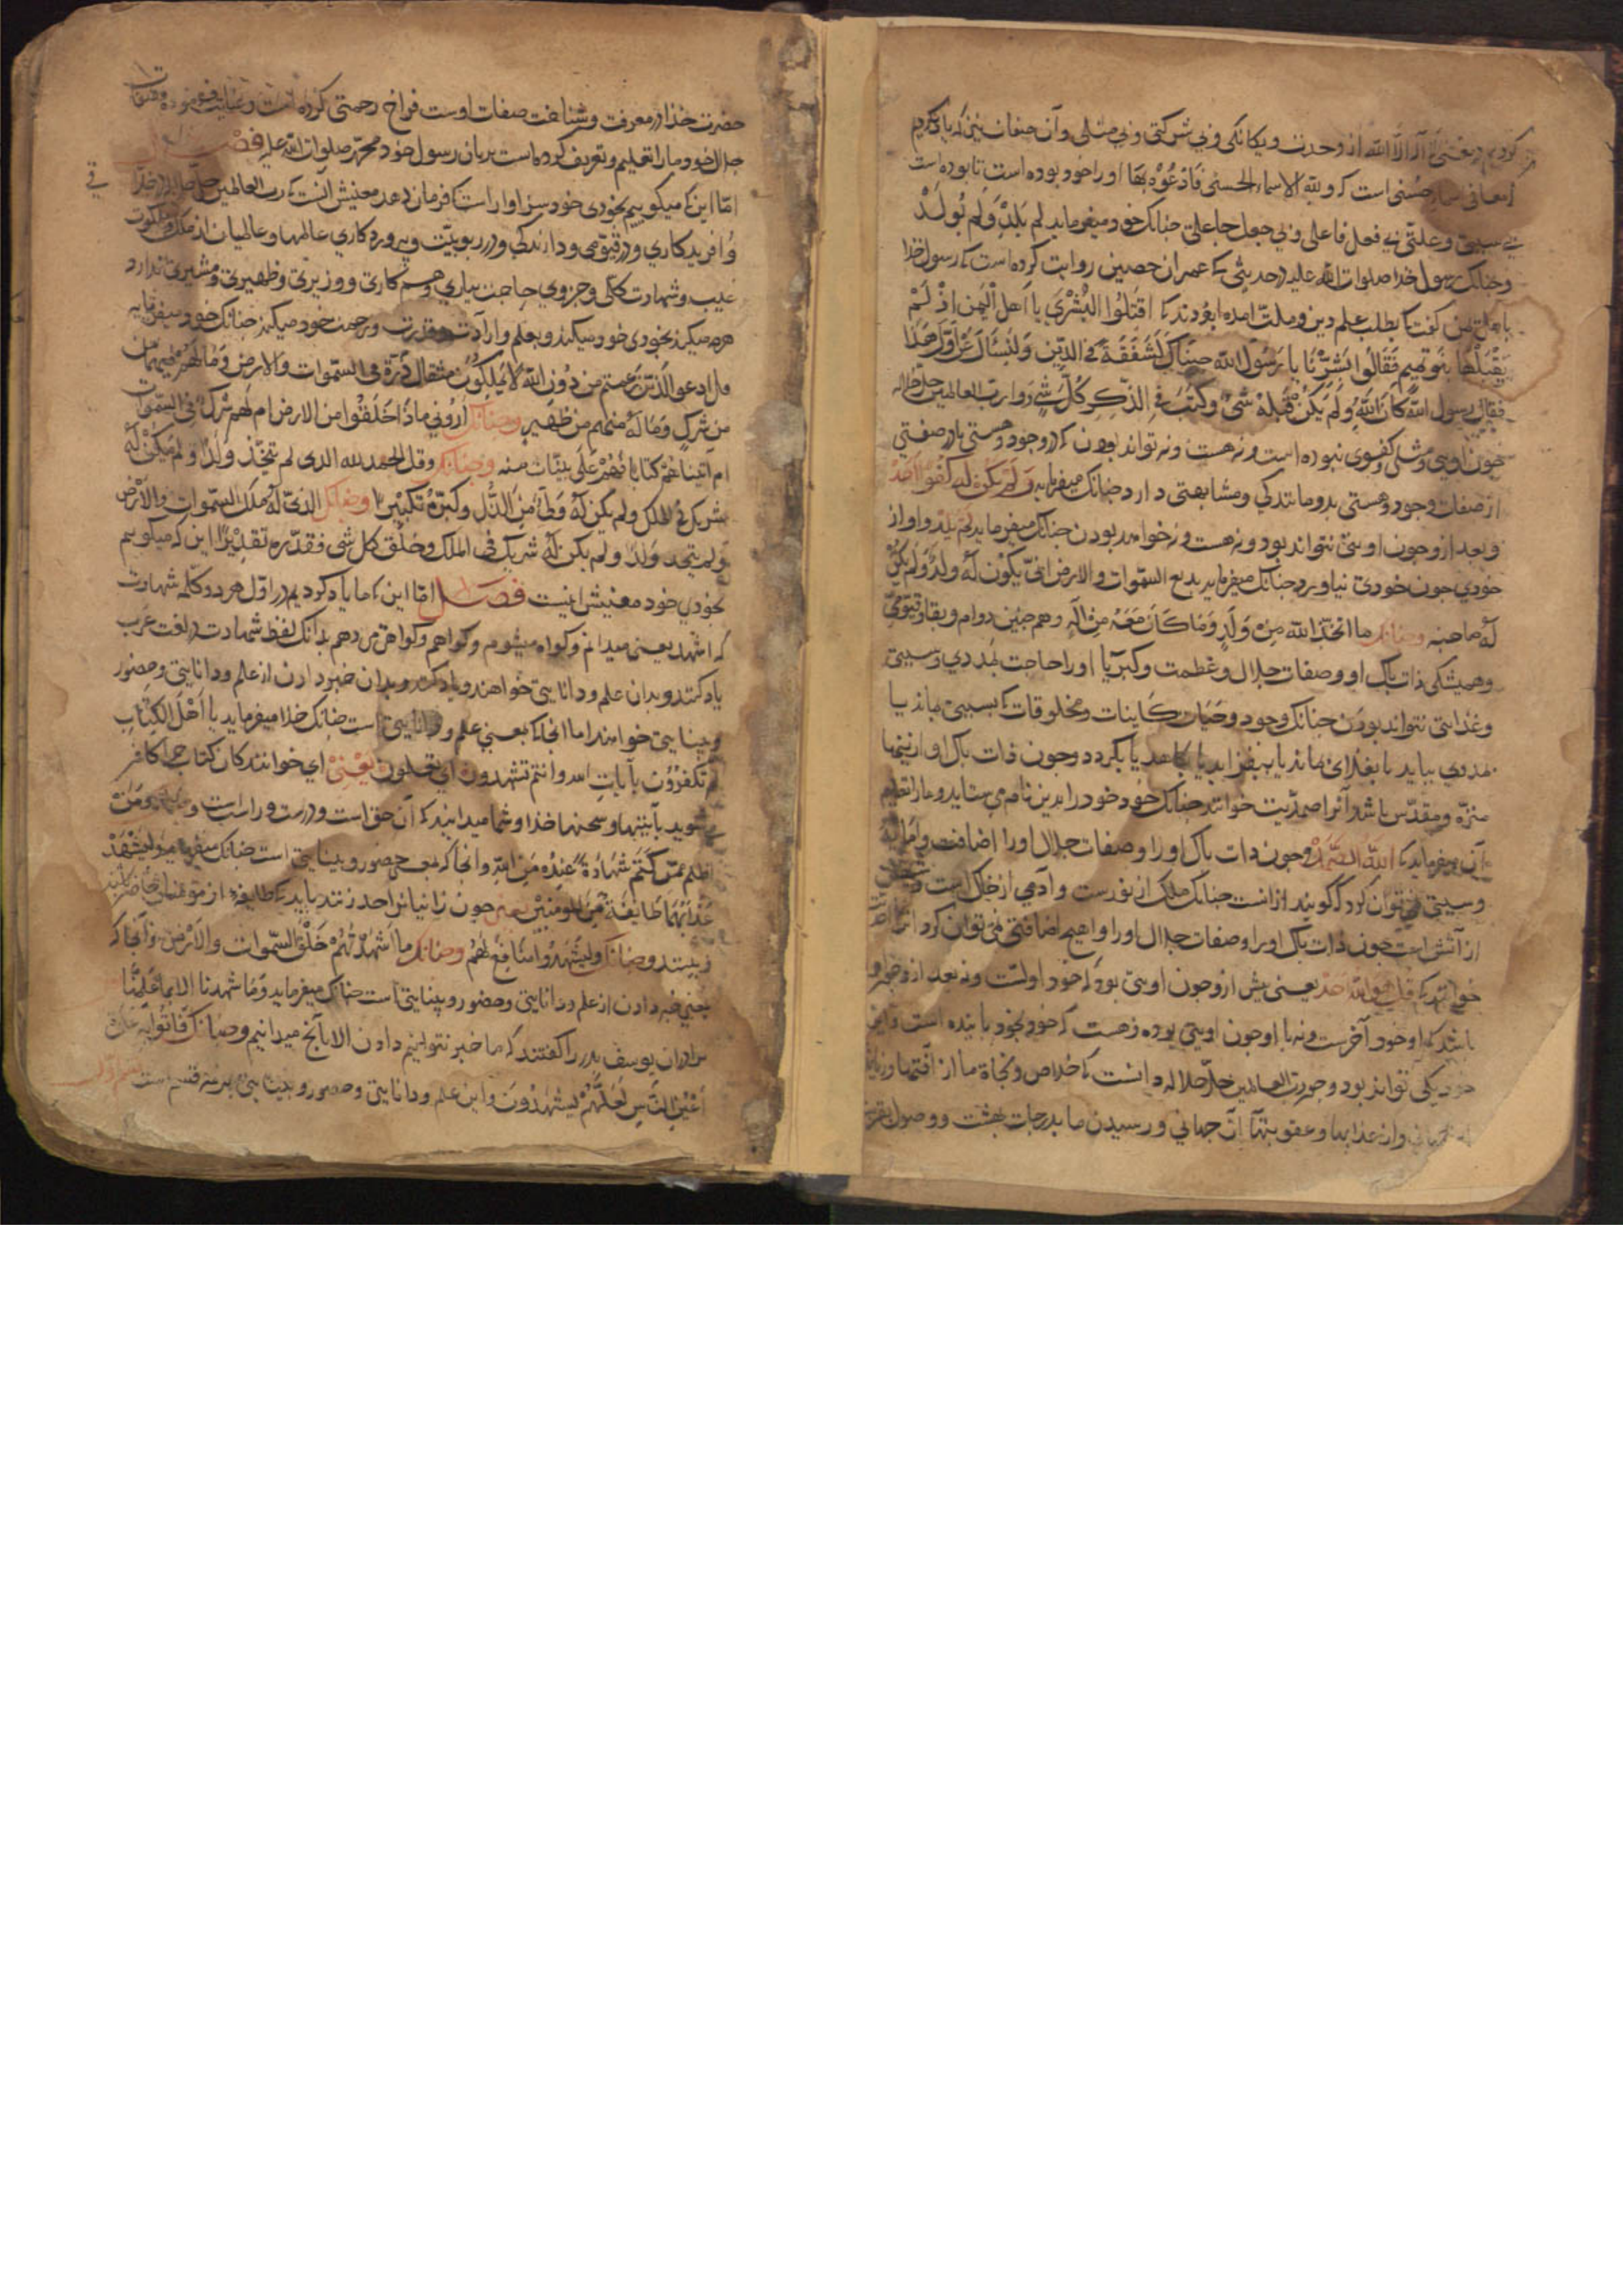 کردیم در معنی لا اله الا الله از وحدت ویکانکی وبی شرکتی وبی مثلی وآن صفات نیز که یاد کردیم
معانی اسماء حسنی است که ولله الاسماء الحسنی فادعوه بها اورا خود بوده است تا بوده است
بی سببی وعلتی بی فعل فاعلی وبی جعل جاعلی جنانک خود میفرماید لم یلد ولم یولد
وجنانک رسول خدا صلوات الله علیه در حدیثی که عمران حصین روایت کرده است که رسول خدا
با اهل یمن کفت که بطلب علم دین وملت امده بودند که اقبلوا البشری یا اهل الیمن اذ لم
یقبلها بنو تمیم فقالوا بشرنا یا رسول الله جیناک لنتفقه فی الدین ولنسأل عن اول هذا
فقال رسول الله کان الله ولم یکن قبله شیء وکتب فی الذکر کل شیء ورب العالمین جل جلاله
جون اویی ومثلی وکفوی نبوده است ونه هست ونه تواند بودن که در وجود وهستی یا در صفتی
از صفات وجود وهستی بدو مانندکی ومشابهتی دارد جنانک میفرماید ولم یکن له کفوا احد
وبعد ازو جون اویی نتواند بود ونه هست ونه خواهد بودن جنانک میفرماید لم یلد واو از
خودی جون خودی نیاورد جنانک میفرماید بدیع السموات والارض انی یکون له ولد ولم یکن
له صاحبه وجنانک ما اتخذ الله من ولد وما کان معه من اله وهم جنین دوام وبقا وقیومی
وهمیشکی ذات باک او وصفات جلال وعظمت وکبریا اورا حاجت بمددی وسببی
وغذایی نتواند بودن جنانک وجود وحیات کاینات ومخلوقات که بسببی ماند یا
بمددی بیاید یا بغذای ماند یا بیفزاید یا بکاهد یا بکردد وجون ذات باک او ازینها
منزه ومقدس باشد آنرا صمدیت خوانند جنانک خود خود را بدین نام می ستاید ومارا تعلیم
آن میفرماید که الله الصمد وجون ذات باک اورا وصفات جلال اورا اضافت
وسببی نتوان کرد که کویند از انست جنانک ملک از نورست وآدمی از خاک است وشیطان
از آتش است جون ذات باک اورا وصفات جلال اورا واهیج اضافتی نمی توان کرد آنرا احد
خوانند که قل هو الله احد یعنی بیش ازو جون اویی بود که خود اولست ونه بعد ازو جون او
باشد که او خود آخرست ونه با او جون اویی بوده وهست که خود بخود باینده است
یکی تواند بود وجون رب العالمین جل جلاله دانست که خلاص ونجاة ما از آفتها
وان عذابها وعقوبتهآ ان جهانی ورسیدن ما بدرجات بهشت ووصول
حضرت خدا در معرفت وشناخت صفات اوست فراخ رحمتی کرده است وعنایت فرموده
جلال خود مارا تعلیم وتعریف کرده است بزبان رسول خود محمد صلوات الله علیه فصل
اما این که میکوییم بخودی خود سزاوار است که فرمان دهد معنیش آنست که رب العالمین جل جلاله در خدا
فی
وافریدکاری ودر قیومی ودارندکی ودر ربوبیت وبروردکاری عالمها وعالمیان از ملک وملکوت
غیب وشهادت کلی وجزوی حاجت بیاری وهم کاری ووزیری وظهیری ومشیری ندارد
هرجه میکند بخودی خود میکند وبعلم وارادت وقدرت وحکمت خود میکند جنانک خود میفرماید
قل ادعوا الذین زعمتم من دون الله لا یملکون مثقال ذرة فی السموات والارض وما لهم فیهما من
من شرک وما له منهم من ظهیر وجنانک ارونی ماذا خلقوا من الارض ام لهم شرک فی السموات
ام آتیناهم کتابا فهم علی بینات منه وجنانک وقل الحمد لله الذی لم یتخذ ولدا ولم یکن له
شریک فی الملک ولم یکن له ولی من الذل وکبره تکبیرا وجنانک الذی له ملک السموات والارض
ولم یتخذ ولدا ولم یکن له شریک فی الملک وخلق کل شی فقدره تقدیرا این که میکوییم
بخودی خود معنیش اینست فصل اما این که ما یاد کردیم در اول هر دو کلمه شهادت
که اشهد یعنی میدانم وکواه میشوم وکواهم وکواهی می دهم بدانک لفظ شهادت در لغت عرب
یاد کنند وبدان علم ودانایی خواهند ویاد کنند وبدان خبر دادن از علم ودانایی وحضور
وبینایی خواهند اما انجا که بمعنی علم ودانایی است جنانک خدا میفرماید یا اهل الکتاب
لم تکفرون بآیات الله وانتم تشهدون ای تعلمون یعنی ای خوانندکان کتاب جرا کافر
می شوید بآیتها وسخنها خدا وشما میدانید که آن حق است ودرست وراست ومن
اظلم ممن کتم شهادة عنده من الله وانجا که بمعنی حضور وبینایی است جنانک میفرماید ولیشهد
عذابهما طایفة من المؤمنین یعنی جون زانیانرا حد زنند باید که طایفه از مؤمنان حاضر باشند
وبینند وجنانک ولیشهدوا منافع لهم وجنانک ما اشهدتهم خلق السموات والارض وآنجا که
بمعنی خبر دادن از علم ودانایی وحضور وبینایی است جنانک میفرماید وما شهدنا الا بما علمنا
برادران یوسف بدر را کفتند که ما خبر نتوانیم دادن الا آنج میدانیم وجنانک فاتوا به علی
اعین الناس لعلهم یشهدون واین علم ودانایی وحضور وبینایی بر سه قسم است قسم اول